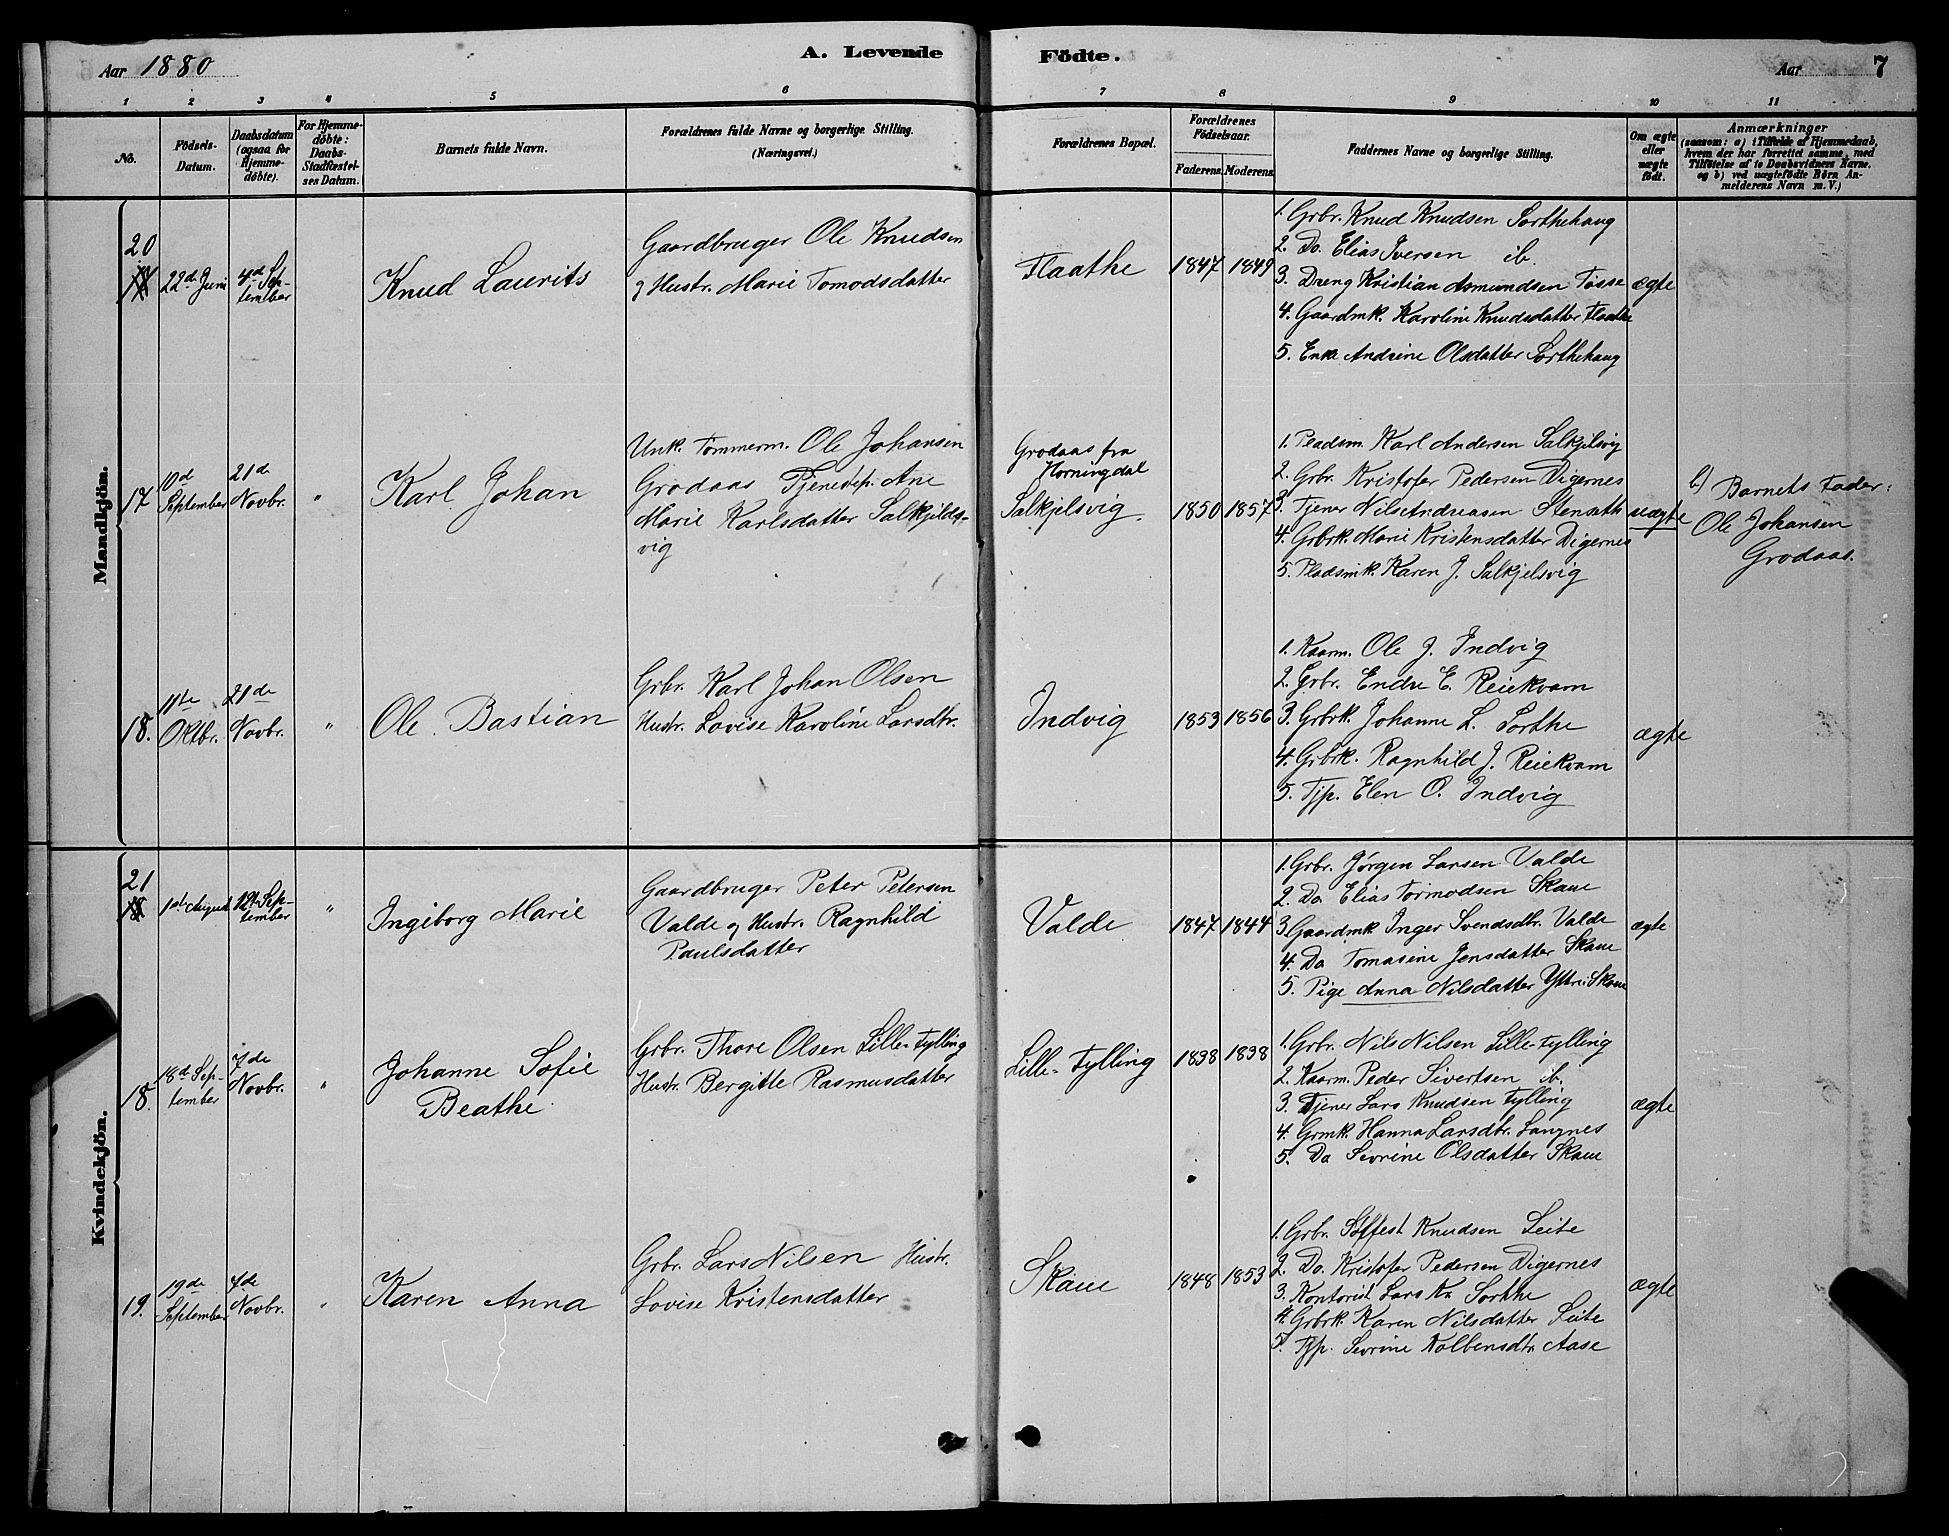 Aar 1880
A. Levende Födte.
Aar 7
1 2 3 4 5 6 7 8 9 10 11
No.
Födsels-Datum.
Daabsdatum (ogsaa for Hjemme-döbte).
For Hjemme-döbte: Daabs-Stadfæstel-ses Datum.
Barnets fulde Navn.
Forældrenes fulde Navne og borgerlige Stilling.
(Næringsvei.)
Forældrenes Bopæl.
Forældrenes Födselsaar.
Faderens. Moderens.
Faddernes Navne og borgerlige Stilling.
Om ægte eller uægte födt.
Anmærkninger
(saasom: a) i Tilfælde af Hjemmedaab,
hvem der har forrettet samme, med
Tilföielse af to Daabsvidners Navne.
og b) ved uægtefödte Börn An-
melderens Navn m.V.)
Mandkjön.
20
22de Juni
4de Sep-
tember
Knud Laurits
Gaardbruger Ole Knudsen
og Hustr. Marie Tomodsdatter
Flaathe
1847 1849
1. Grbr. Knud Knudsen Sorthehaug
2. Do. Elias Iversen ib.
3. Dreng Kristian Asmundsen Tosse
4. Gaardmk. Karoline Knudsdatter Flaathe
5. Enke Andrine Olsdatter Sorthehaug
ægte
17.
10de
September
21de
Novbr.
"
Karl Johan
Unk. Tømmerm. Ole Johansen
Grodaas Tjenestep. Ane
Marie Karlsdatter Salkjelds-
vig
Grodaas fra
Horningdal
Salkjelsvig.
1850 1857
1. Pladsm. Karl Andersen Salkjelsvig
2. Grbr. Kristofer Pedersen Digernes
3. Tjener Nils Andreasen Stenseth
4. Grbrk. Marie Kristensdatter Digernes
5. Pladsmk. Karen J. Salkjelsvig
uægte
b) Barnets Fader:
Ole Johansen
Grodaas.
18.
11te
Oktbr.
21de
Novbr.
"
Ole Bastian
Grbr. Karl Johan Olsen
Hustr. Lovise Karoline Larsdtr.
Indvig
1853 1856
1. Kaarm. Ole J. Indvig
2. Grbr. Endre E. Reiekvam
3. Grbrk. Johanne L. Sorthe
4. Grbrk. Ragnhild J. Reiekvam
5. Tjp. Elen O. Indvig
ægte
Kvindekjön.
21
1ste August
12te Sep-
tember
"
Ingeborg Marie
Gaardbruger Peter Petersen
Valde og Hustr. Ragnhild
Paulsdatter
Valde
1847 1844
1. Grbr. Jørgen Larsen Valde
2. Do Elias Tormodsen Skaue
3. Gaardmk Inger Svendsdtr. Valde
4. Do Tomasine Jensdatter Skaue
5. Pige Anna Nilsdatter Yttre Skaue
ægte
18.
18de Sep-
tember
7de
Novbr.
"
Johanne Sofie
Beathe
Grbr. Thore Olsen Lille-Tylling
Hustr. Bergitte Rasmusdatter
Lille-Tylling
1838 1838
1. Grbr. Nils Nilsen Lille-Tylling
2. Kaarm. Peder Sivertsen ib.
3. Tjener Lars Knudsen Tylling
4. Grmk. Hanna Larsdtr. Langnes
5. Do Sevrine Olsdatter Skaue
ægte
19.
19de
September
7de
Novbr.
"
Karen Anna
Grbr. Lars Nilsen Hustr.
Lovise Kristensdatter
Skaue
1848 1853
1. Grbr. Søffest Knudsen Leite
2. Do. Kristofer Pedersen Digernes
3. Kontorist Lars Kn Sorthe
4. Grbrk. Karen Nilsdatter Leite
5. Tjp. Sevrine Kolbensdtr. Aase
ægte